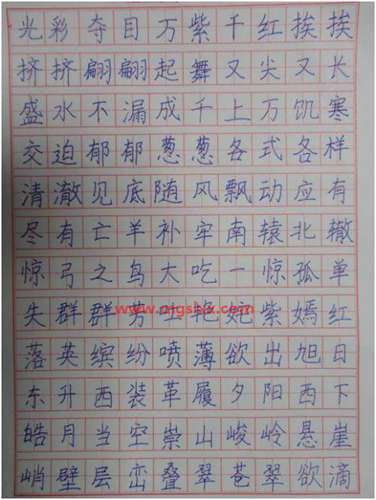 光彩夺目万紫千红挨挨
挤挤翩翩起舞又尖又长
盛水不漏成千上万饥寒
交迫郁郁葱葱各式各样
清澈见底随风飘动应有
尽有亡羊补牢南辕北辙
惊弓之鸟大吃一惊孤单
失群群芳斗艳姹紫嫣红
落英缤纷喷薄欲出旭日
东升西装革履夕阳西下
皓月当空崇山峻岭悬崖
峭壁层峦叠翠苍翠欲滴